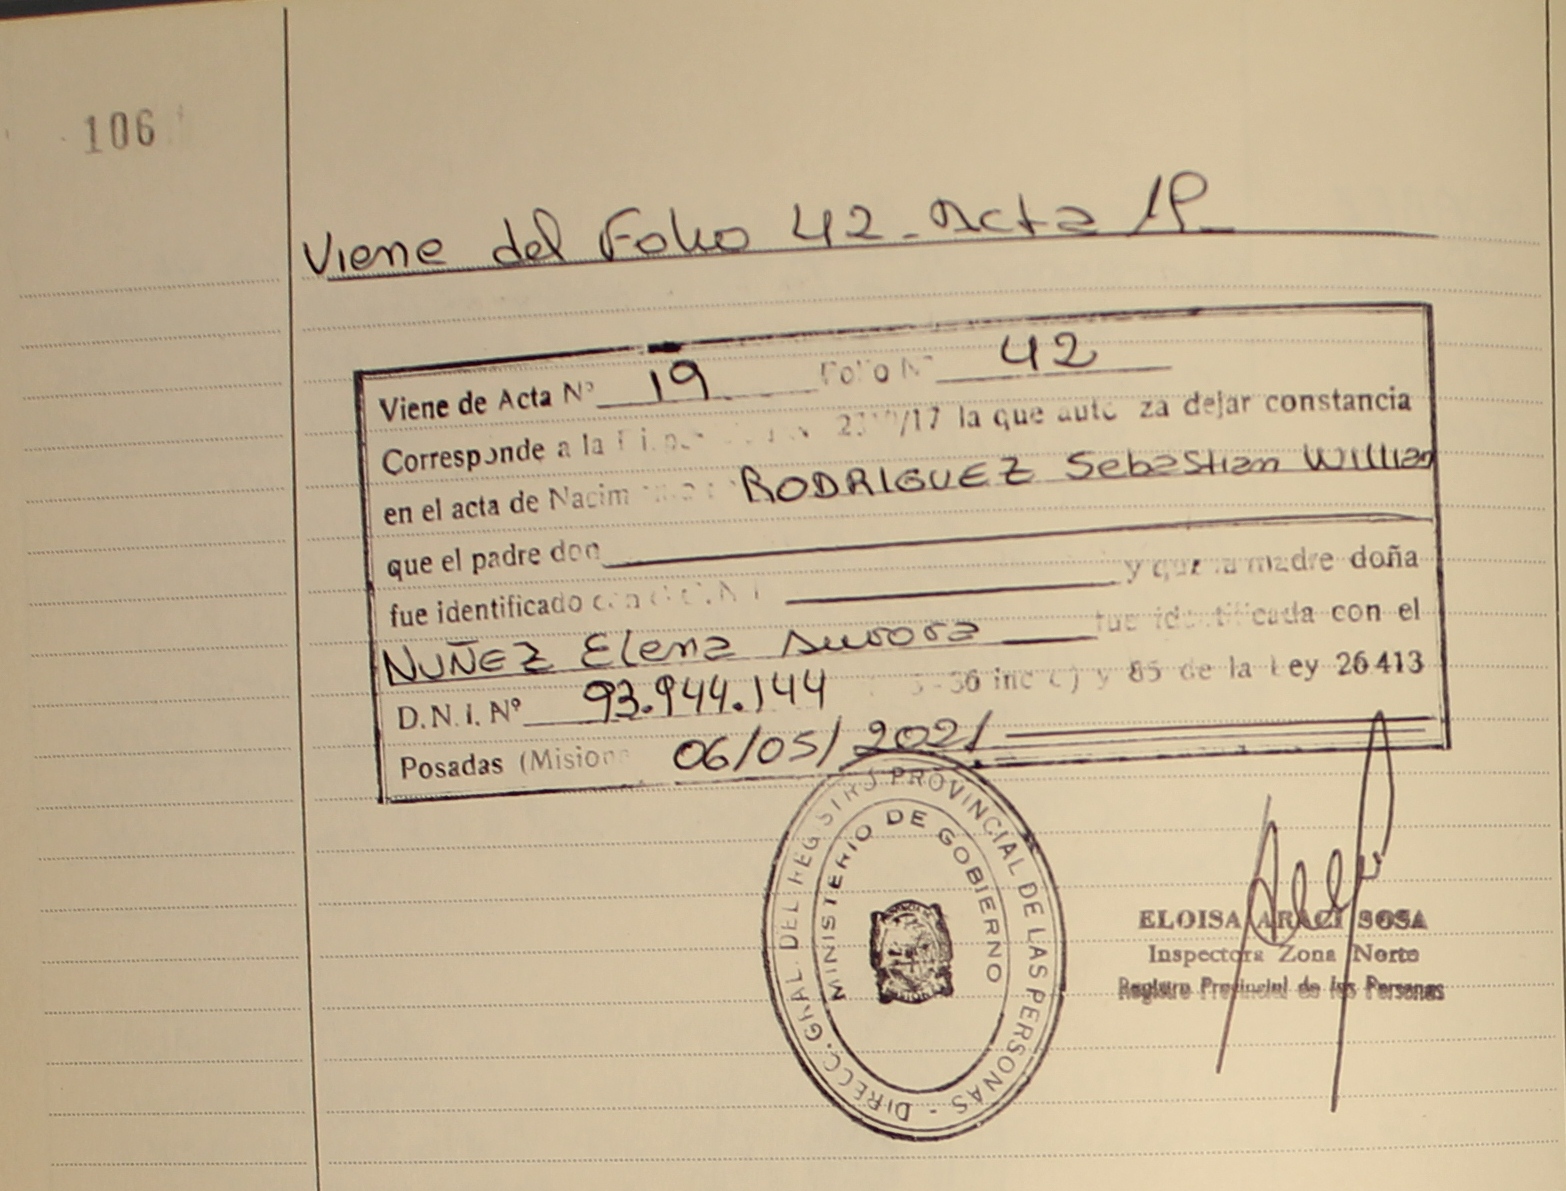 106
Viene del Folio 42 - Acta 19
Viene de Acta Nº 19 Folio Nº 42
Corresponde a la /17 la que autoriza dejar constancia
en el acta de Nacim RODRIGUEZ Sebastian Willian
que el padre don
fue identificado con y que la madre doña
NUÑEZ Elena Aurora fue identificada con el
D.N.I. Nº 93.944.144 36 inc c) y 85 de la Ley 26413
Posadas (Misiones 06/05/2021
DIRECC. GRAL. DEL REGISTRO PROVINCIAL DE LAS PERSONAS -
MINISTERIO DE GOBIERNO
ELOISA ARACI SOSA
Inspectora Zona Norte
Registro Provincial de las Personas